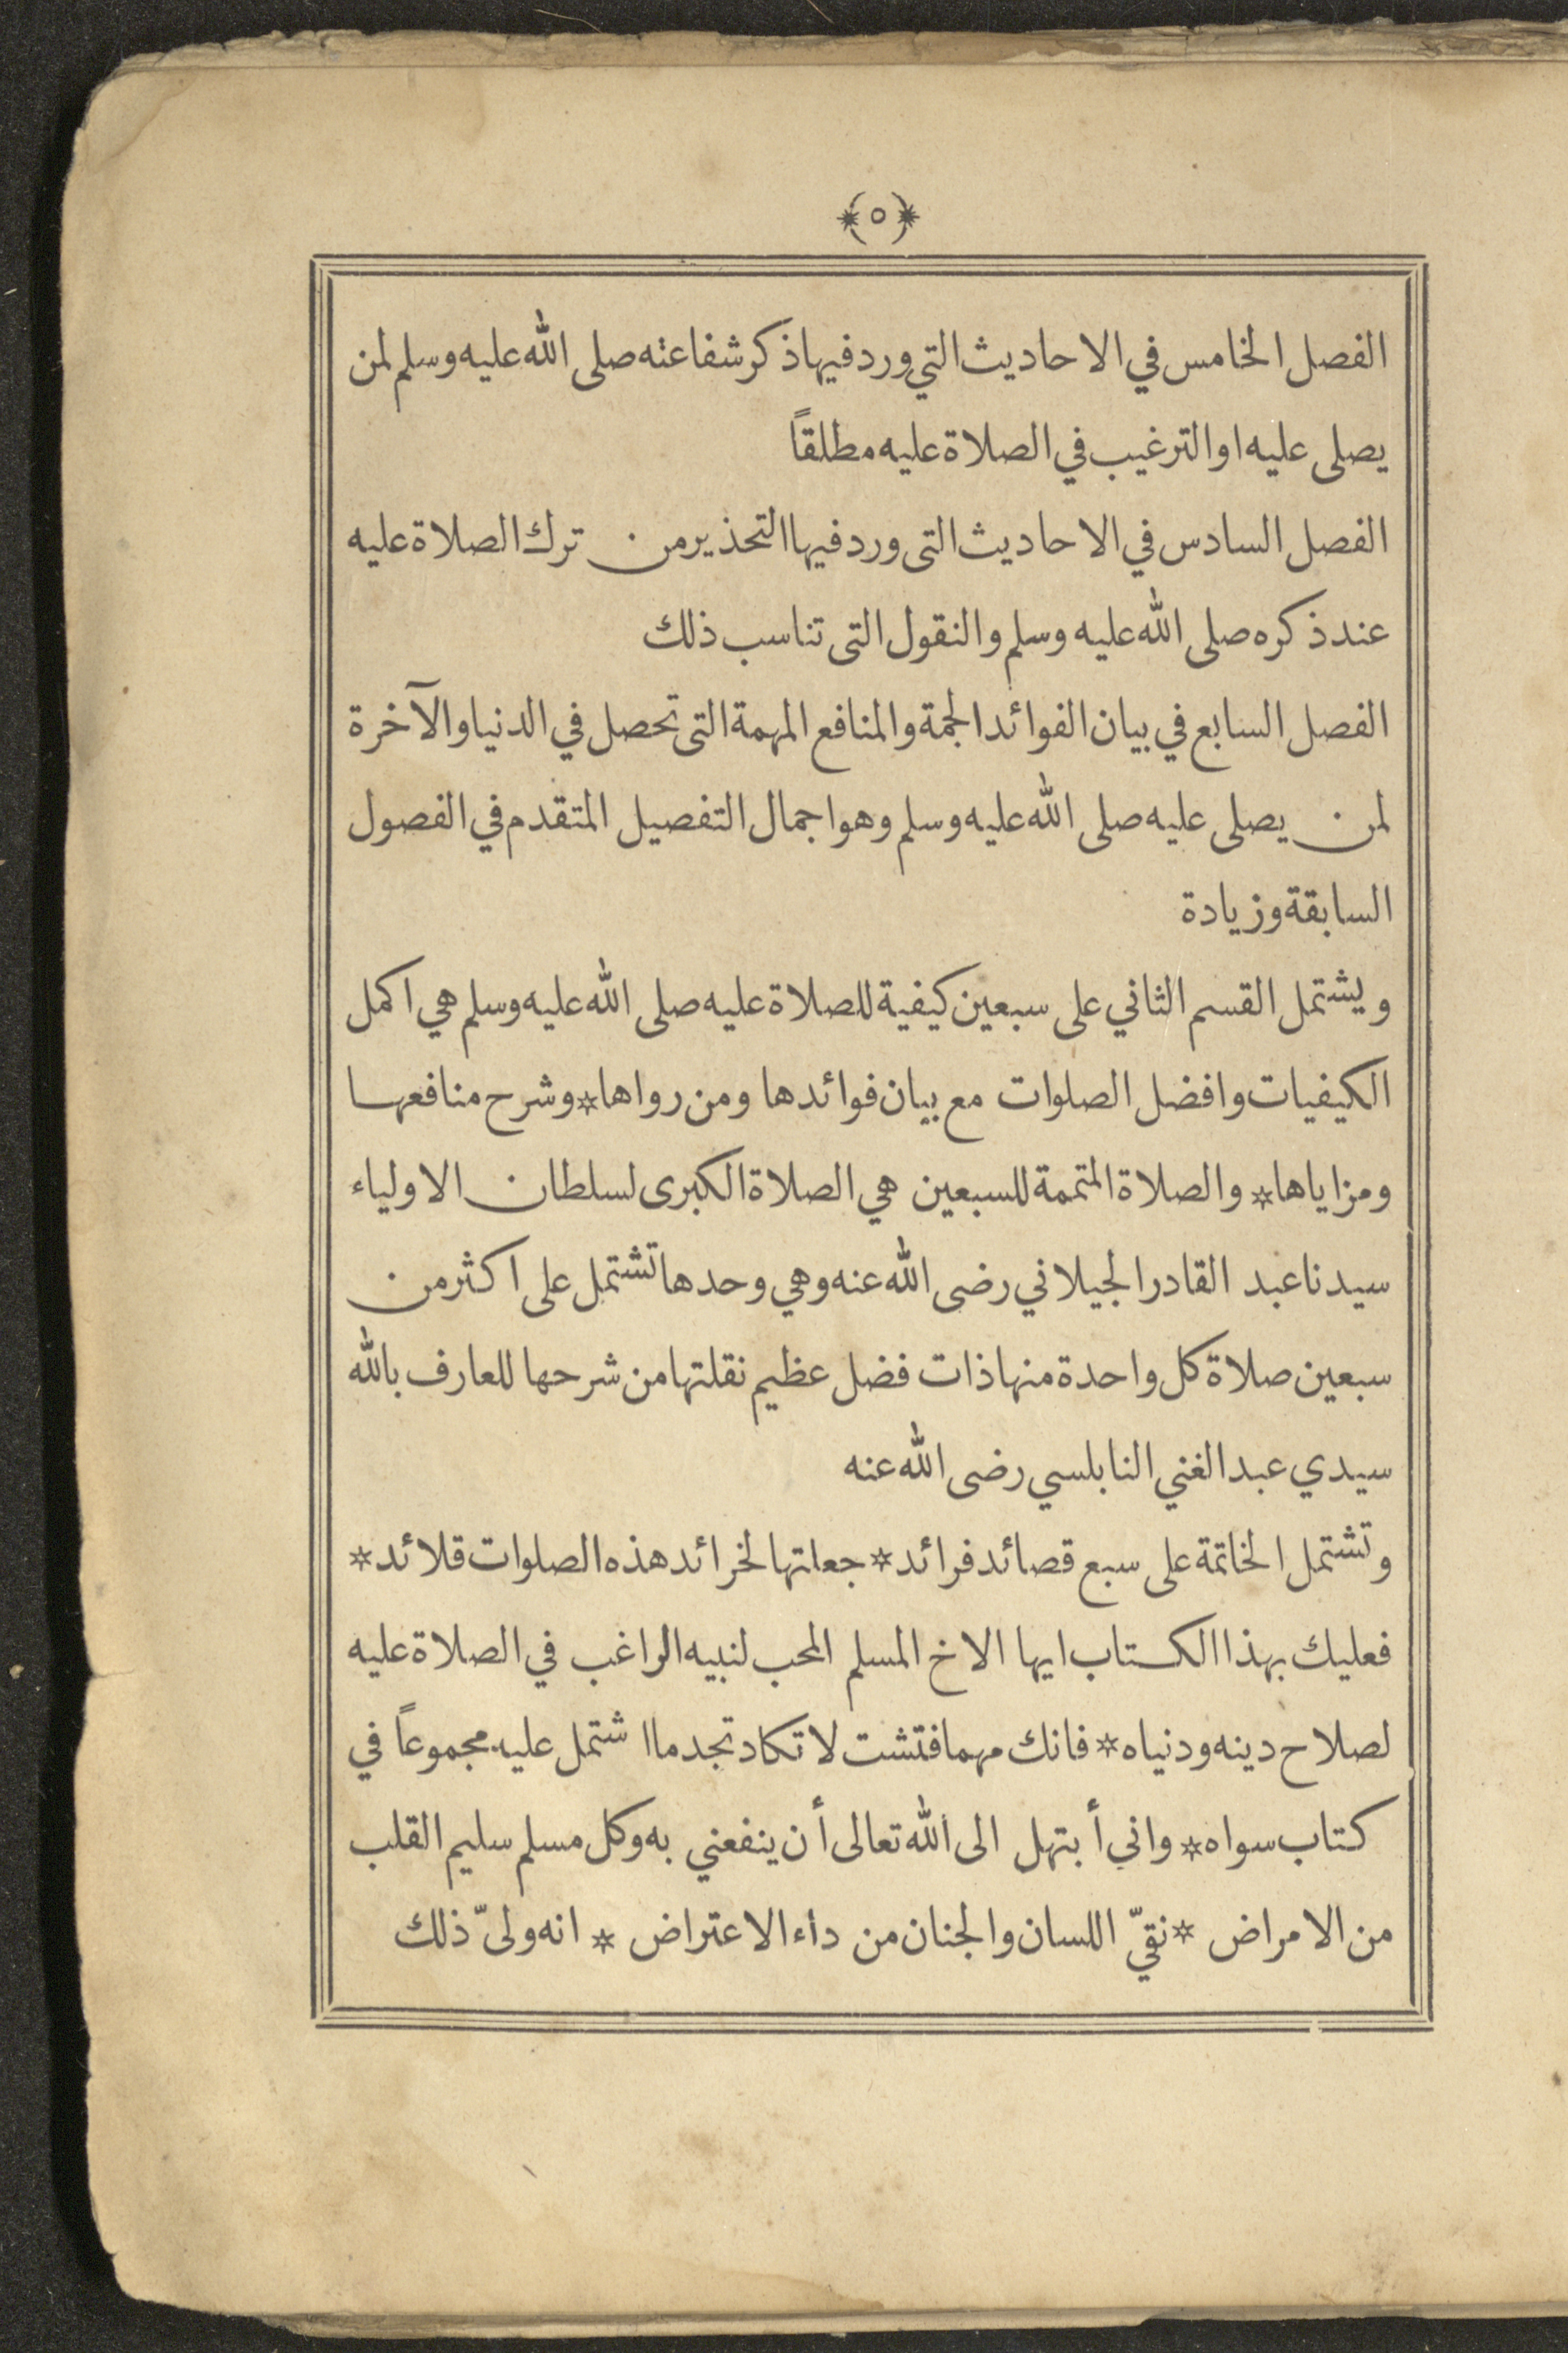 *(٥)*
الفصل الخامس في الاحاديث التي ورد فيها ذكر شفاعته صلى الله عليه وسلم لمن
يصلى عليه او الترغيب في الصلاة عليه مطلقاً
الفصل السادس في الاحاديث التى ورد فيها التحذير من ترك الصلاة عليه
عند ذكره صلى الله عليه وسلم والنقول التى تناسب ذلك
الفصل السابع في بيان الفوائد الجمة والمنافع المهمة التى تحصل في الدنيا والآخرة
لمن يصلى عليه صلى الله عليه وسلم وهو اجمال التفصيل المتقدم في الفصول
السابقة وزيادة
ويشتمل القسم الثاني على سبعين كيفية للصلاة عليه صلى الله عليه وسلم هي اكمل
الكيفيات وافضل الصلوات مع بيان فوائدها ومن رواها * وشرح منافعها
ومزاياها * والصلاة المتممة للسبعين هي الصلاة الكبرى لسلطان الاولياء
سيدنا عبد القادر الجيلاني رضى الله عنه وهي وحدها تشتمل على اكثر من
سبعين صلاة كل واحدة منها ذات فضل عظيم نقلتها من شرحها للعارف بالله
سيدي عبد الغني النابلسي رضى الله عنه
وتشتمل الخاتمة على سبع قصائد فرائد * جعلتها لخرائد هذه الصلوات قلائد *
فعليك بهذا الكتاب ايها الاخ المسلم المحب لنبيه الراغب في الصلاة عليه
لصلاح دينه ودنياه * فانك مهما فتشت لا تكاد تجد ما اشتمل عليه مجموعاً في
كتاب سواه * واني أبتهل الى الله تعالى أن ينفعني به وكل مسلم سليم القلب
من الامراض * نقيّ اللسان والجنان من داء الاعتراض * انه ولىّ ذلك